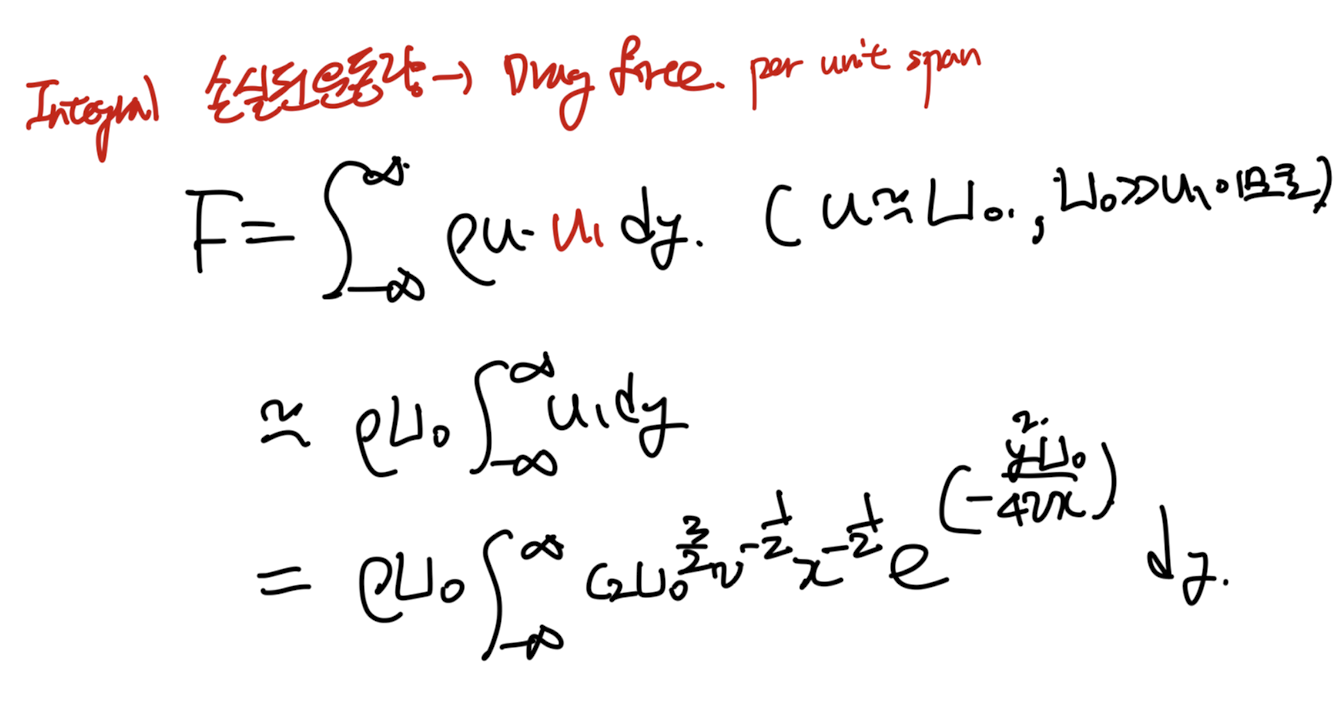 Integral 손실된운동량→ Drag force. per unit span
F = ∫_{-∞}^{∞} ρu·u₁ dy. ( u≃U₀, , U₀≫u₁이므로)
≃ ρU₀ ∫_{-∞}^{∞} u₁dy
= ρU₀ ∫_{-∞}^{∞} C₂U₀^{3/2} ν^{-1/2} x^{-1/2} e^{(-y²U₀/4νx)} dy.